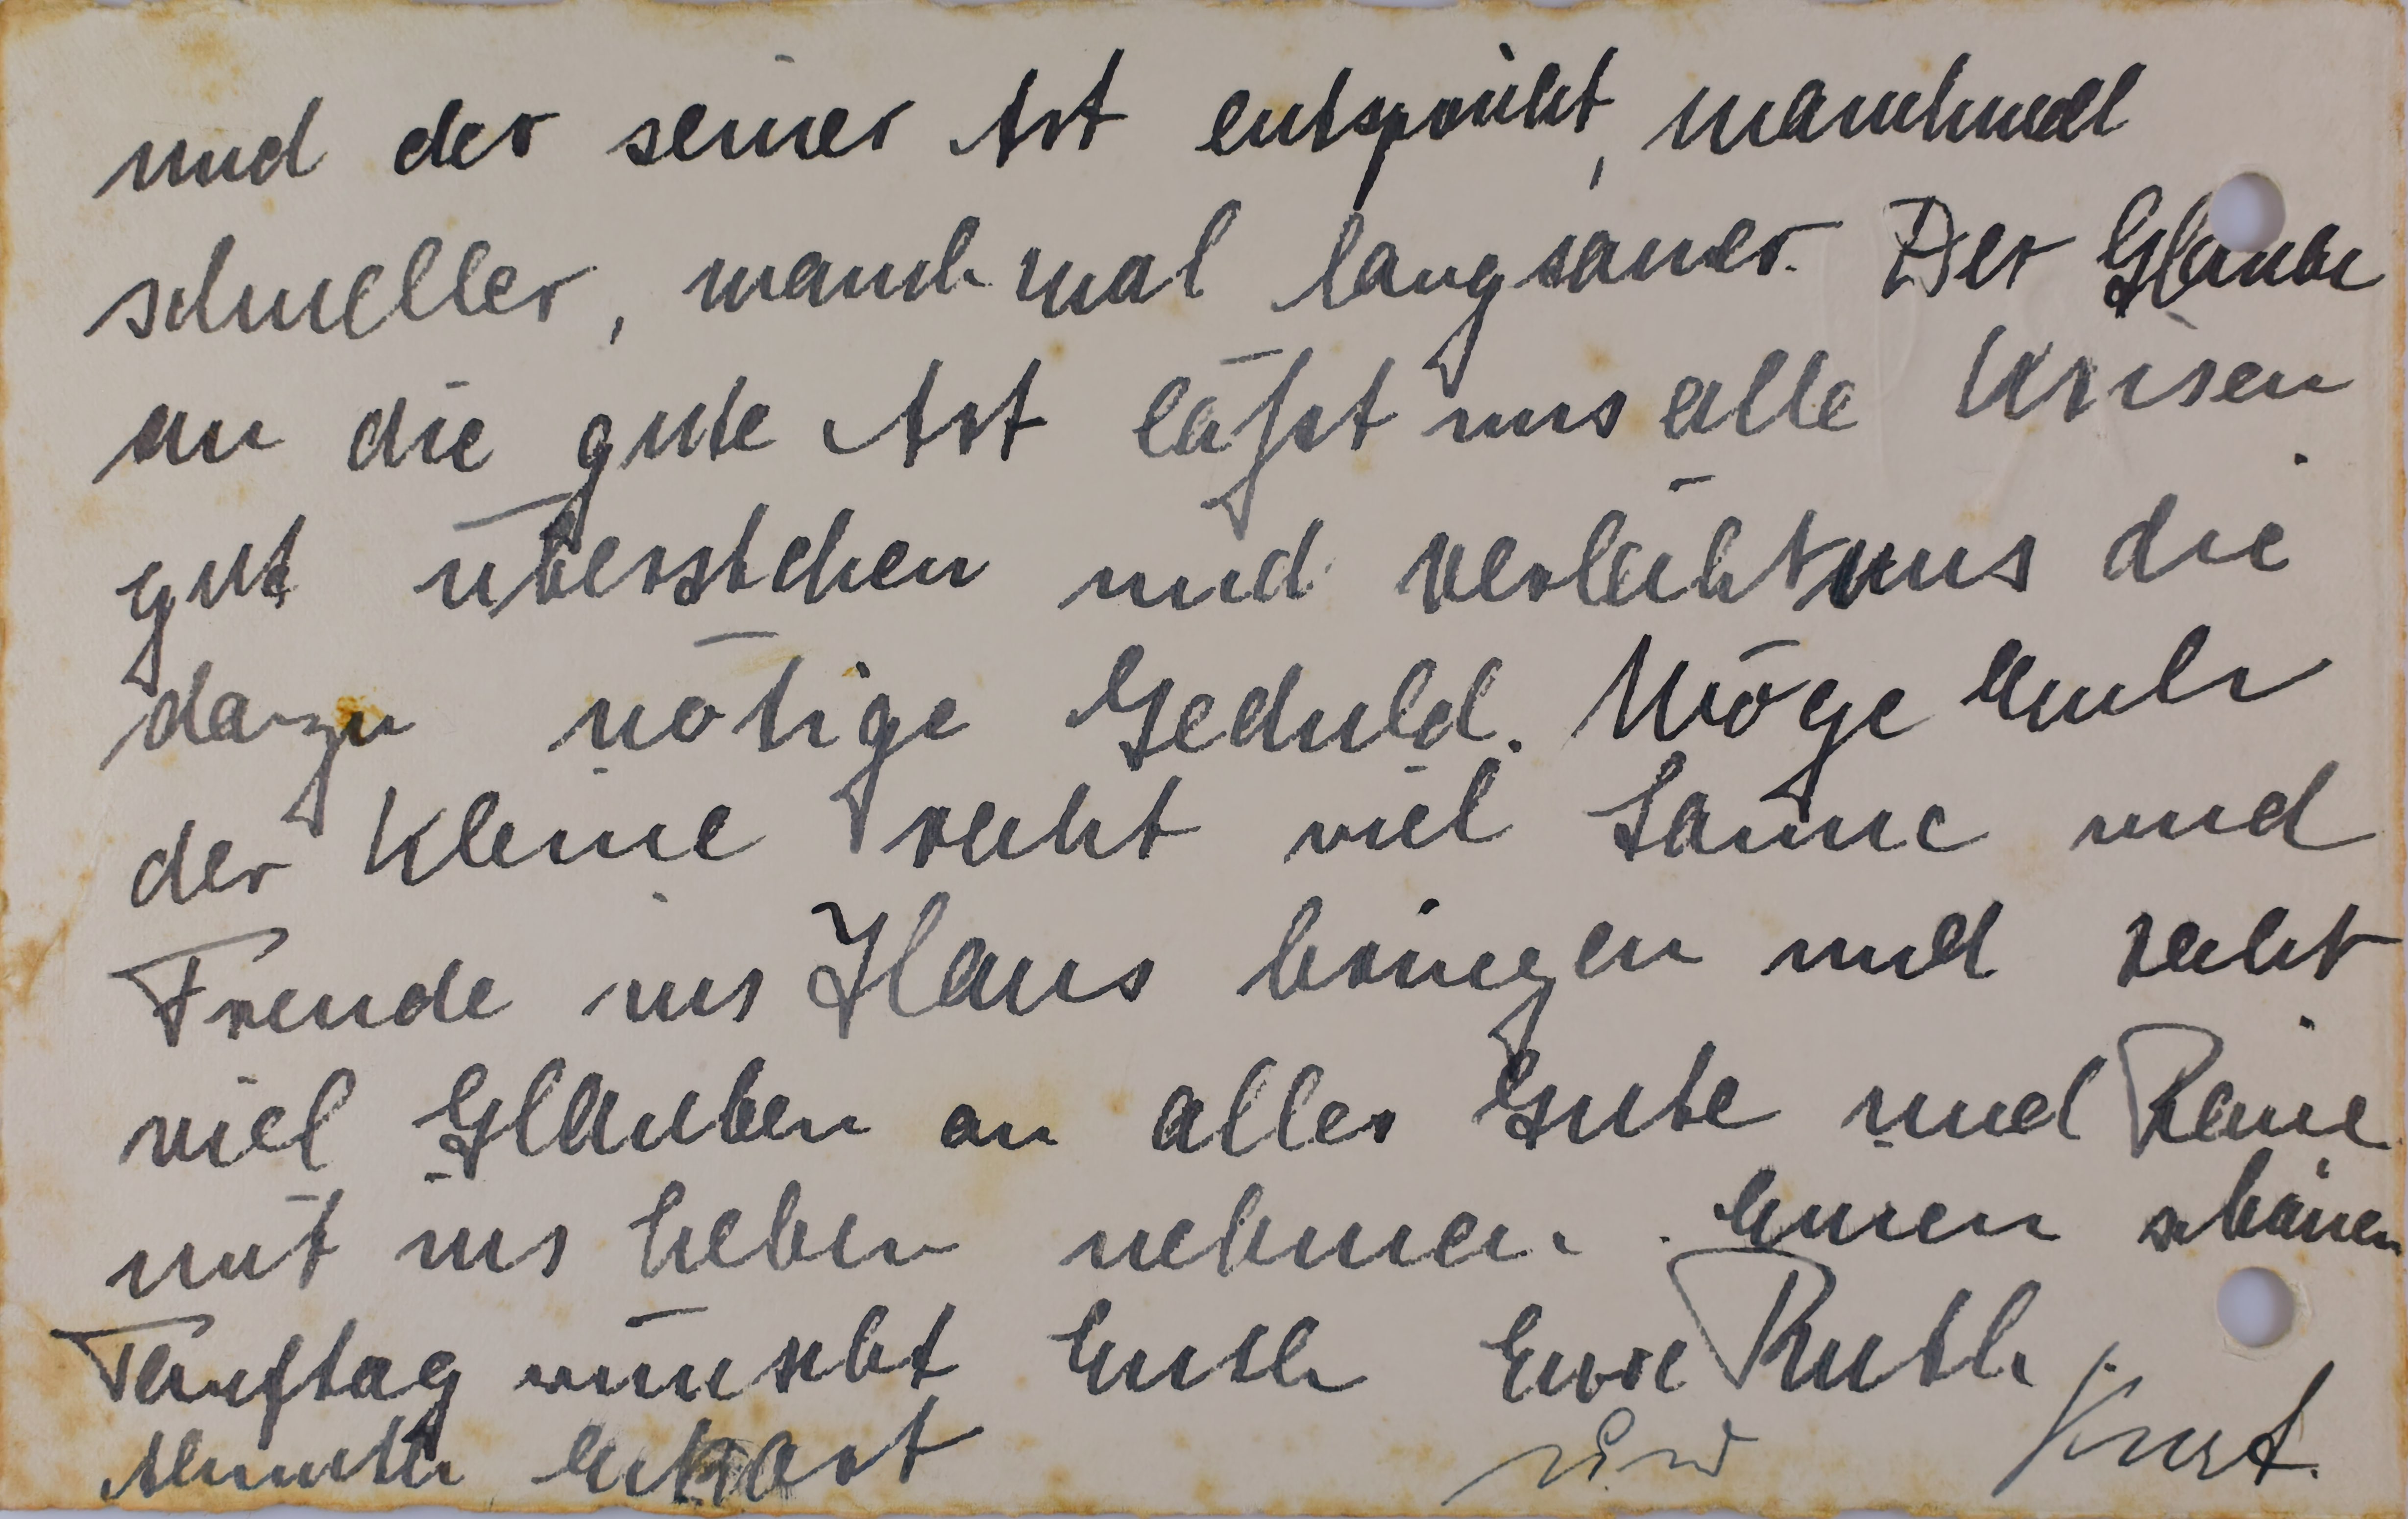 und der seiner Art entspricht, manchmal
schneller, manchmal langsamer. Der Glaube
an die gute Art läßt uns alle Krisen
gut überstehen und verleiht uns die
dazu nötige Geduld. Möge Euch
der Kleine recht viel Sonne und
Freude ins Haus bringen und recht
viel Glauben an alles Gute und Reine
mit ins Leben nehmen. Einen schönen
Tauftag wünscht Euch Eure Ruth
und Kurt.